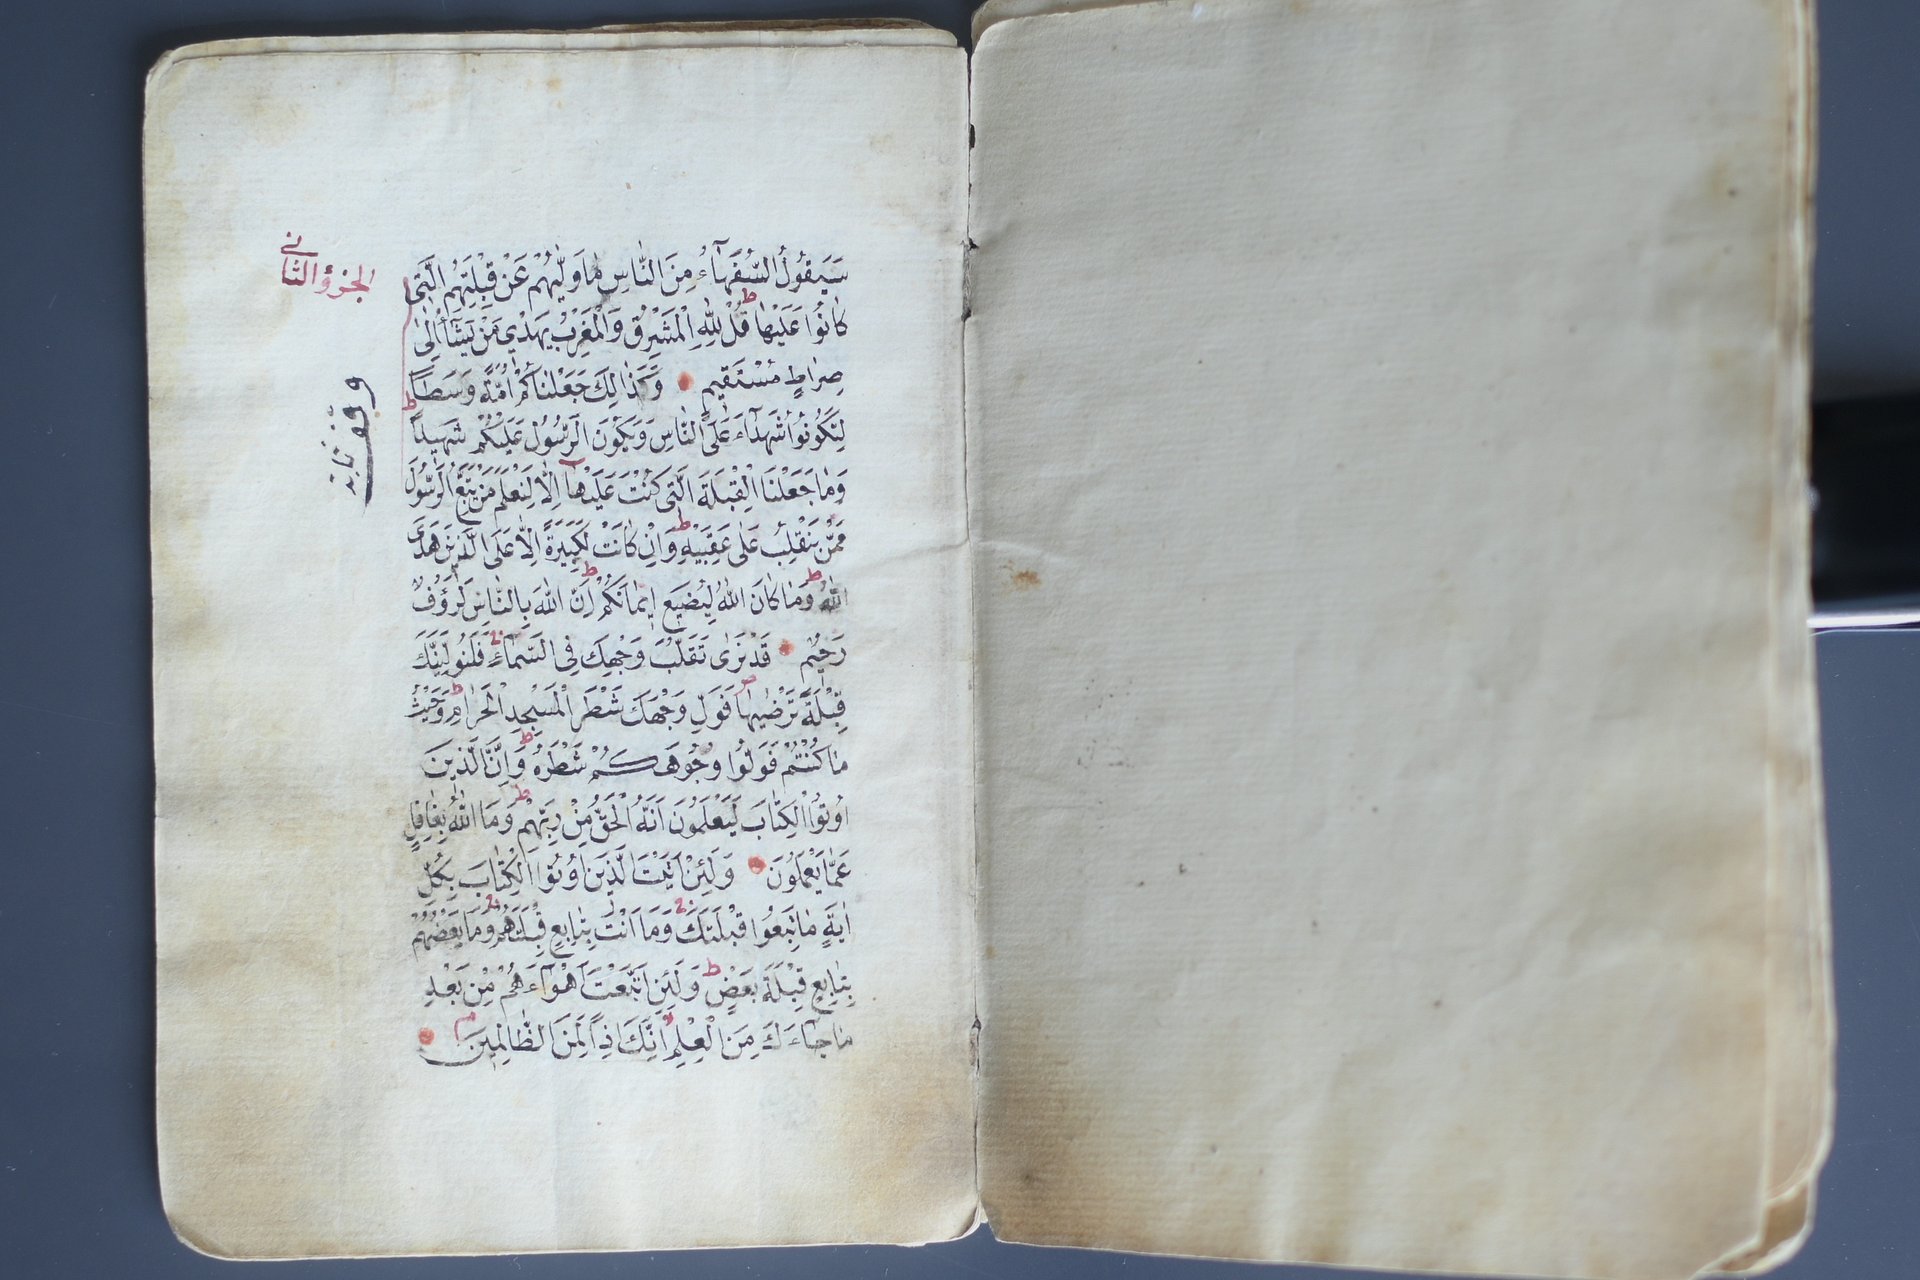 الجزؤ الثاني
وقف
سَيَقُولُ السُّفَهَآءُ مِنَ النَّاسِ مَا وَلّٰيهُمْ عَنْ قِبْلَتِهِمُ الَّتِى
كَانُوا عَلَيْهَا ط قُلْ لِلّٰهِ الْمَشْرِقُ وَالْمَغْرِبُ يَهْدِى مَنْ يَشَآءُ اِلٰى
صِرَاطٍ مُسْتَقِيمٍ وَكَذَالِكَ جَعَلْنَاكُمْ اُمَّةً وَسَطًا
لِتَكُونُوا شُهَدَآءَ عَلَى النَّاسِ وَيَكُونَ الرَّسُولُ عَلَيْكُمْ شَهِيدًا ط
وَمَا جَعَلْنَا الْقِبْلَةَ الَّتِى كُنْتَ عَلَيْهَآ اِلَّا لِنَعْلَمَ مَنْ يَتَّبِعُ الرَّسُولَ
مِمَّنْ يَنْقَلِبُ عَلٰى عَقِبَيْهِ ط وَاِنْ كَانَتْ لَكَبِيرَةً اِلَّا عَلَى الَّذِينَ هَدَى
اللّٰهُ ط وَمَا كَانَ اللّٰهُ لِيُضِيعَ اِيمَانَكُمْ ط اِنَّ اللّٰهَ بِالنَّاسِ لَرَؤُفٌ
رَحِيمٌ قَدْ نَرٰى تَقَلُّبَ وَجْهِكَ فِى السَّمَآءِ فَلَنُوَلِّيَنَّكَ
قِبْلَةً تَرْضٰيهَا ص فَوَلِّ وَجْهَكَ شَطْرَ الْمَسْجِدِ الْحَرَامِ ط وَحَيْثُ
مَا كُنْتُمْ فَوَلُّوا وُجُوهَكُمْ شَطْرَهُ ط وَاِنَّ الَّذِينَ
اُوتُوا الْكِتَابَ لَيَعْلَمُونَ اَنَّهُ الْحَقُّ مِنْ رَبِّهِمْ ط وَمَا اللّٰهُ بِغَافِلٍ
عَمَّا يَعْمَلُونَ وَلَئِنْ اَتَيْتَ الَّذِينَ اُوتُوا الْكِتَابَ بِكُلِّ
اٰيَةٍ مَا تَبِعُوا قِبْلَتَكَ وَمَا اَنْتَ بِتَابِعٍ قِبْلَتَهُمْ وَمَا بَعْضُهُمْ
بِتَابِعٍ قِبْلَةَ بَعْضٍ ط وَلَئِنِ اتَّبَعْتَ اَهْوَآءَهُمْ مِنْ بَعْدِ
مَا جَآءَكَ مِنَ الْعِلْمِ اِنَّكَ اِذًا لَمِنَ الظَّالِمِينَ م